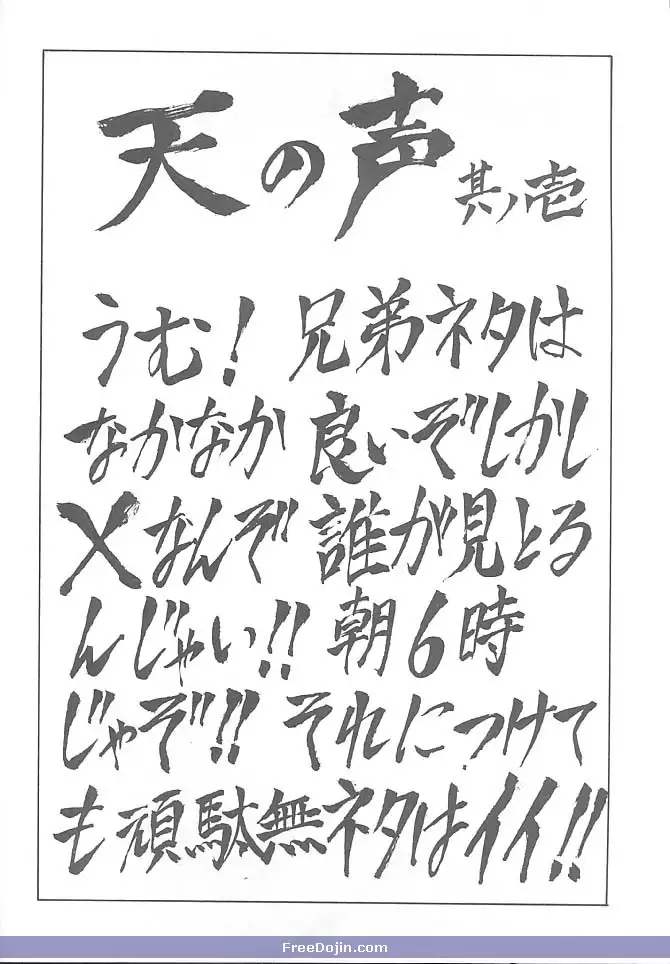 天の声 其ノ壱
うむ! 兄弟ネタは
なかなか良いぞしかし
Xなんぞ誰が見とる
んじゃい!! 朝6時
じゃぞ!! それにつけて
も頑駄無ネタはイイ!!
FreeDojin.com